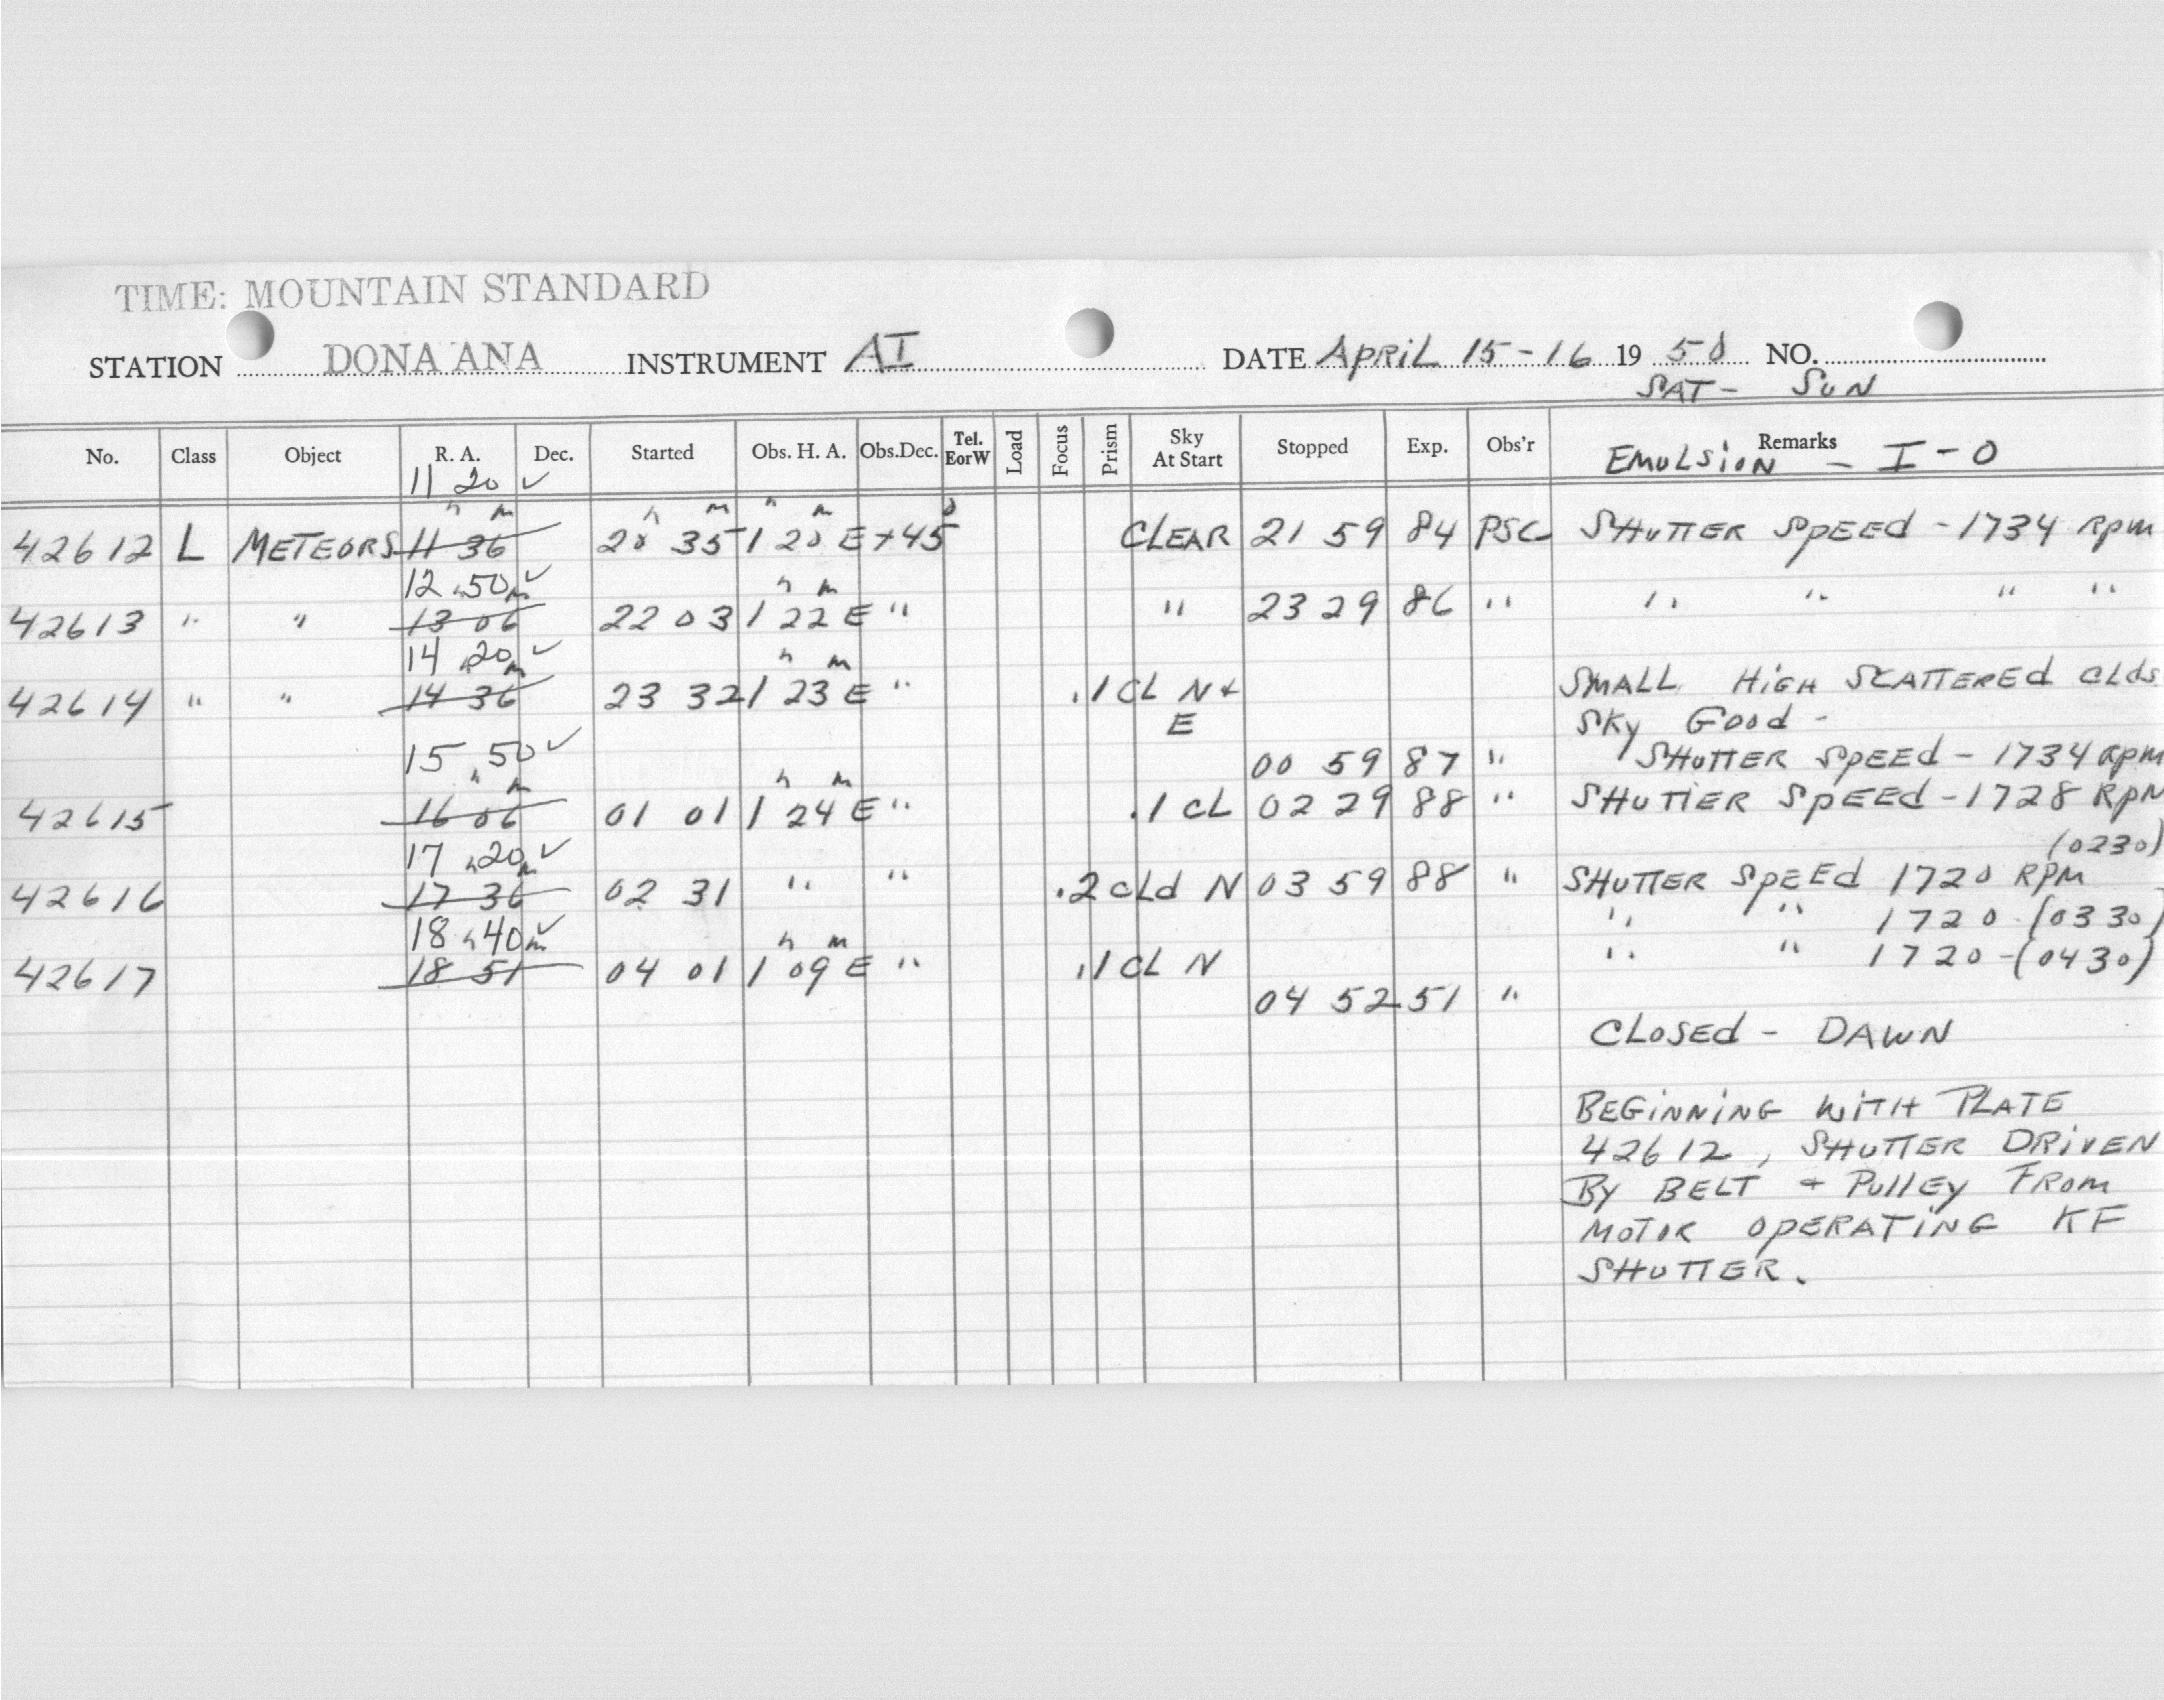 TIME: MOUNTAIN STANDARD
STATION DONA ANA INSTRUMENT AI DATE APRIL 15-16 1950 NO.
SAT- SUN
No. Class Object R. A. Dec. Started Obs. H. A. Obs.Dec. Tel. EorW Load Focus Prism Sky At Start Stopped Exp. Obs'r Remarks
EMULSION - I-O
11 20 ✓
42612 L METEORS 11h 36m 20h 35m 1h 20m E +45° CLEAR 21 59 84 PSC SHUTTER SPEED - 1734 RPM
12h 50m ✓
42613 " " 13 06 22 03 1h 22m E " " 23 29 86 " " " " "
14h 20m ✓
42614 " " 14 36 23 32 1h 23m E " .1 CL N + SMALL HIGH SCATTERED CLDS
E SKY GOOD -
15h 50m ✓ 00 59 87 " SHUTTER SPEED - 1734 RPM
42615 16 06 01 01 1h 24m E " .1 CL 02 29 88 " SHUTTER SPEED - 1728 RPM
(0230)
17h 20m ✓
42616 17 36 02 31 " " .2 CLd N 03 59 88 " SHUTTER SPEED 1720 RPM
" " 1720 - (0330)
18h 40m ✓
42617 18 51 04 01 1h 09m E " .1 CL N " " 1720 - (0430)
04 52 51 "
CLOSED - DAWN
BEGINNING WITH PLATE
42612, SHUTTER DRIVEN
BY BELT + PULLEY FROM
MOTOR OPERATING KF
SHUTTER.